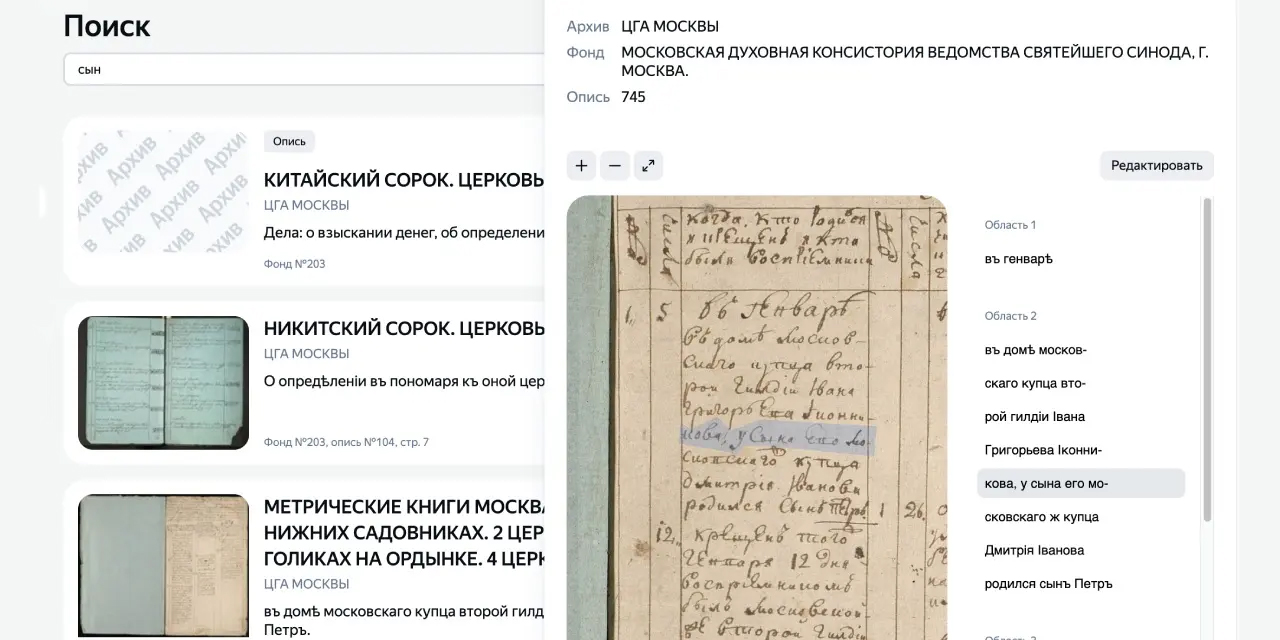 Поиск
сын
Опись
КИТАЙСКИЙ СОРОК. ЦЕРКОВЬ
ЦГА МОСКВЫ
Дела: о взыскании денег, об определени
Фонд №203
НИКИТСКИЙ СОРОК. ЦЕРКОВЬ
ЦГА МОСКВЫ
О опредѣленіи въ пономаря къ оной цер
Фонд №203, опись №104, стр. 7
МЕТРИЧЕСКИЕ КНИГИ МОСКВА
НИЖНИХ САДОВНИКАХ. 2 ЦЕР
ГОЛИКАХ НА ОРДЫНКЕ. 4 ЦЕРК
ЦГА МОСКВЫ
въ домѣ московскаго купца второй гилд
Петръ.
Архив ЦГА МОСКВЫ
Фонд МОСКОВСКАЯ ДУХОВНАЯ КОНСИСТОРИЯ ВЕДОМСТВА СВЯТЕЙШЕГО СИНОДА, Г.
МОСКВА.
Опись 745
Редактировать
Архив Архив Архив
Архив Архив Архив
когда, кто родился
и крещенъ и кто
были воспріемники
числа
1 5 въ генварѣ
въ домѣ москов-
скаго купца вто-
рой гилдіи Івана
Григорьева Іконни-
кова, у сына его мо-
сковскаго ж купца
Дмитрія Іванова
родился сынъ Петръ 1 26
12 крещенъ того
генваря 12 дня
воспріемникомъ
былъ московской
второй гилдіи
Область 1
въ генварѣ
Область 2
въ домѣ москов-
скаго купца вто-
рой гилдіи Івана
Григорьева Іконни-
кова, у сына его мо-
сковскаго ж купца
Дмитрія Іванова
родился сынъ Петръ